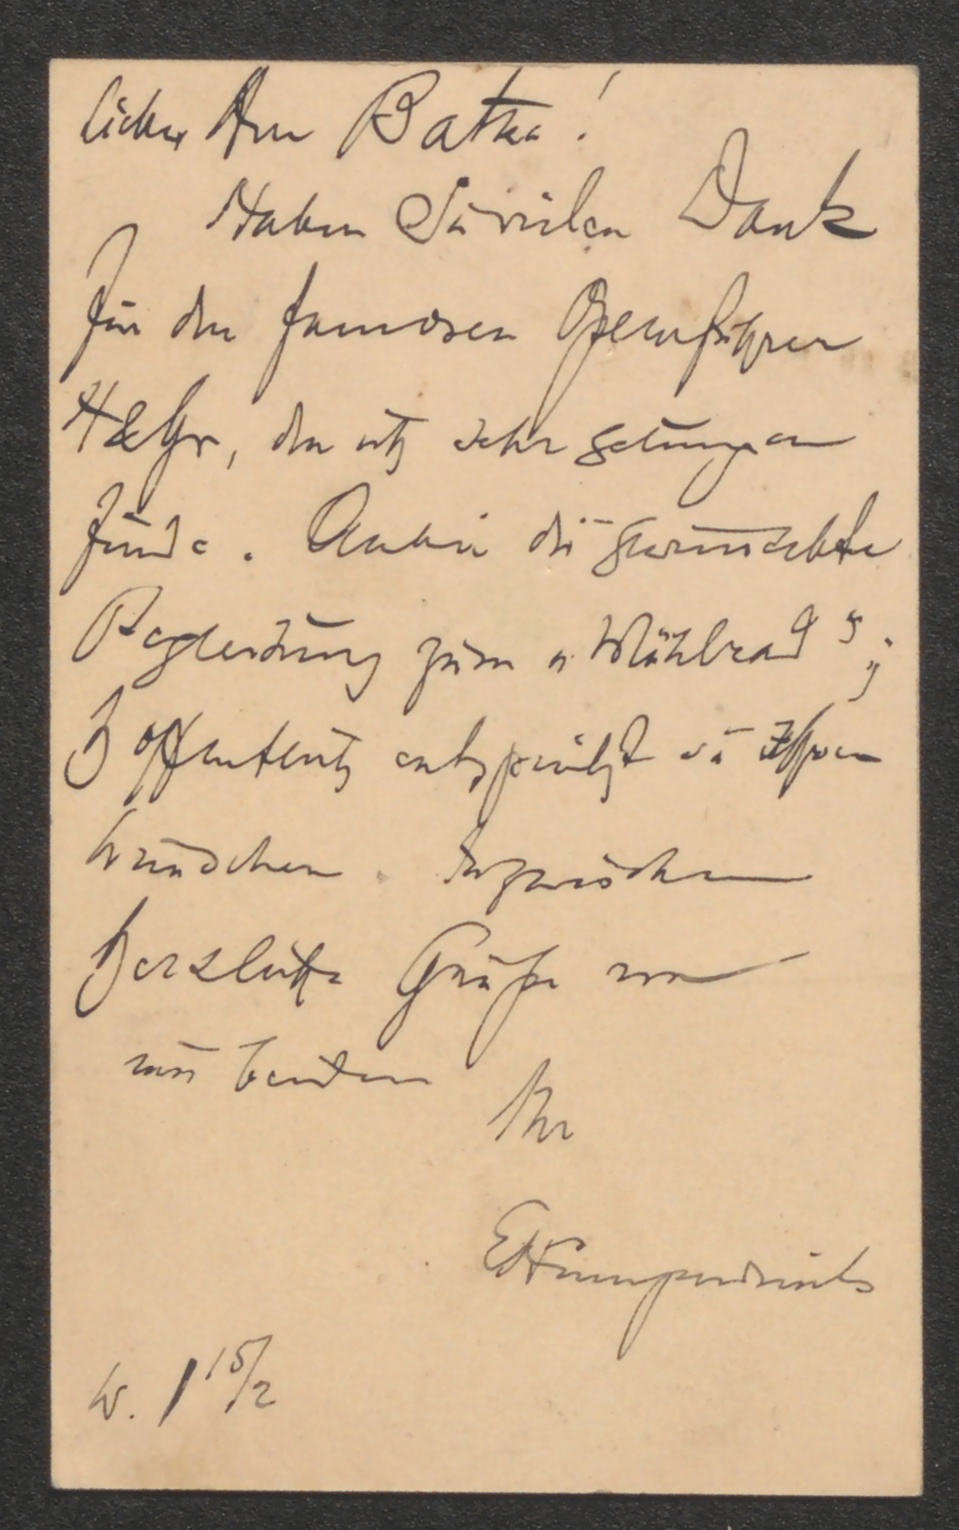 Lieber Herr Batka!
Haben Sie vielen Dank
für den famosen Opernführer
H&Gr, den ich sehr gelungen
finde. Anbei die gewünschte
Begleitung zum „Mühlrad“;
hoffentlich entspricht sie Ihren
Wünschen. Inzwischen
herzliche Grüße von
uns beiden
Ihr
EHumperdinck
W. 15/2